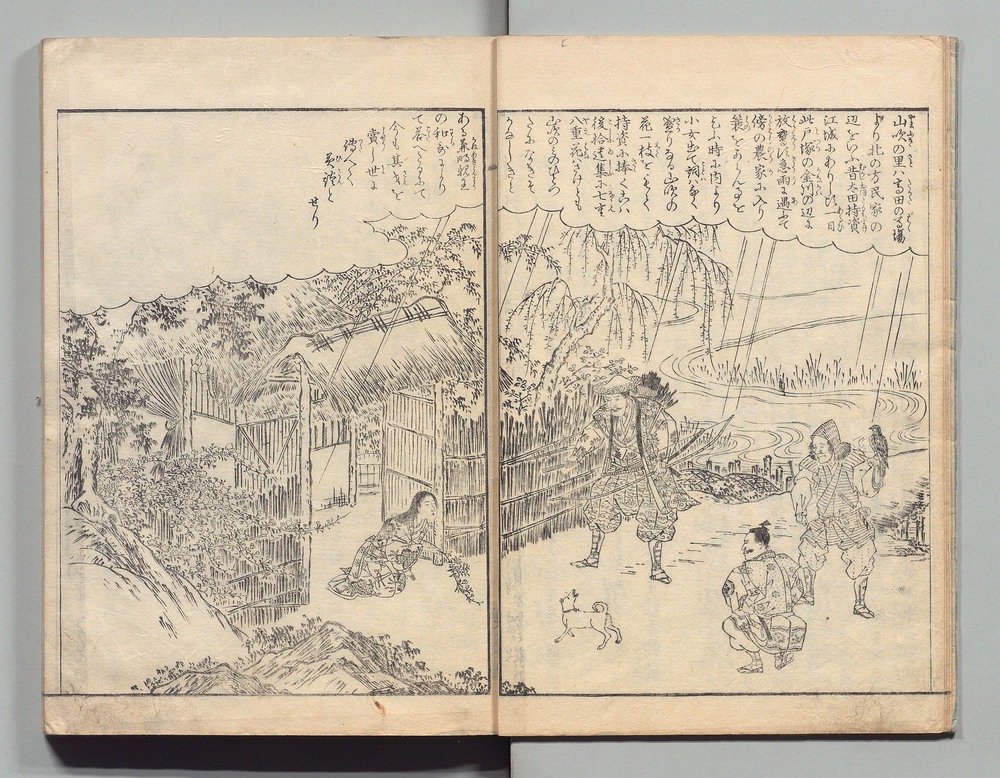 山吹の里ハ高田の馬場
より北の方民家の
辺をいふ昔太田持資
江城にありし頃一日
此戸塚の金川の辺に
放鷹し急雨に遇ふて
傍の農家に入り
簑をからんことを
乞ふ時に内より
小女出て詞なく
盛りなる山吹の
花一枝をもちて
持資に捧くこハ
後拾遺集に七重
八重花さけとも
山吹のみのひとつ
たになきそ
かなしきと
ある兼明親王
の和歌により
て答へたるにて
今も其気を
賞し世に
伝へて
美談と
せり